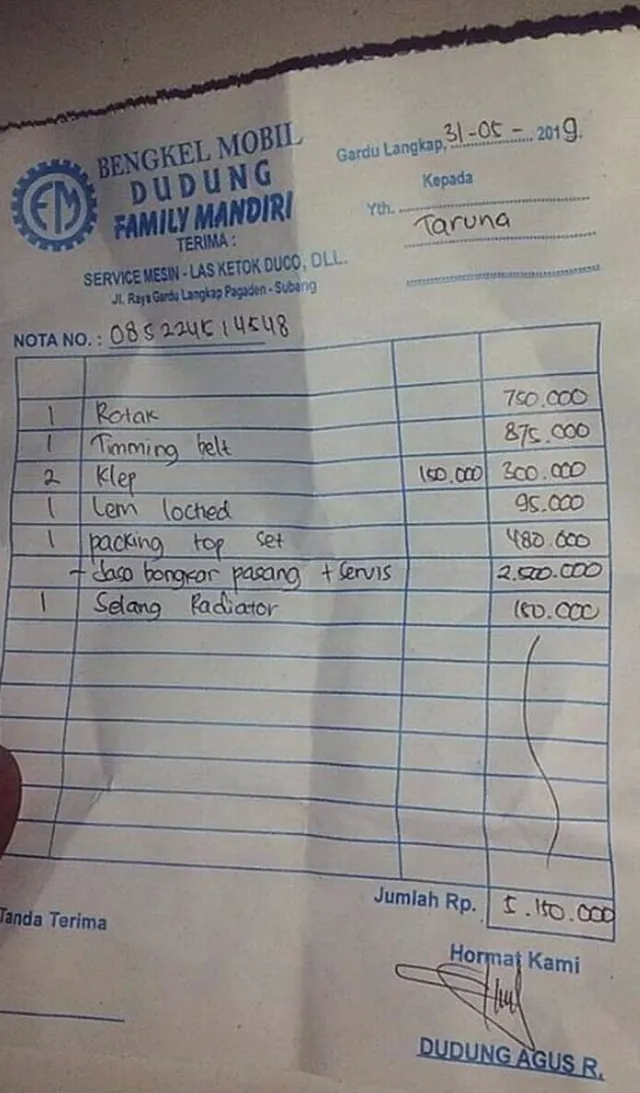 BENGKEL MOBIL
DUDUNG
FAMILY MANDIRI
TERIMA :
SERVICE MESIN - LAS KETOK DUCO, DLL.
Jl. Raya Gardu Langkap Pagaden - Subang
FM
Gardu Langkap, 31-05 - 2019.
Kepada
Yth.
Taruna
NOTA NO. : 085224514548
1 Rotak 750.000
1 Timming belt 875.000
2 Klep 150.000 300.000
1 Lem loched 95.000
1 packing top set 480.000
- Jaso bongkar pasang + Servis 2.500.000
1 Selang Radiator 150.000
Jumlah Rp. 5.150.000
Tanda Terima
Hormat Kami
DUDUNG AGUS R.